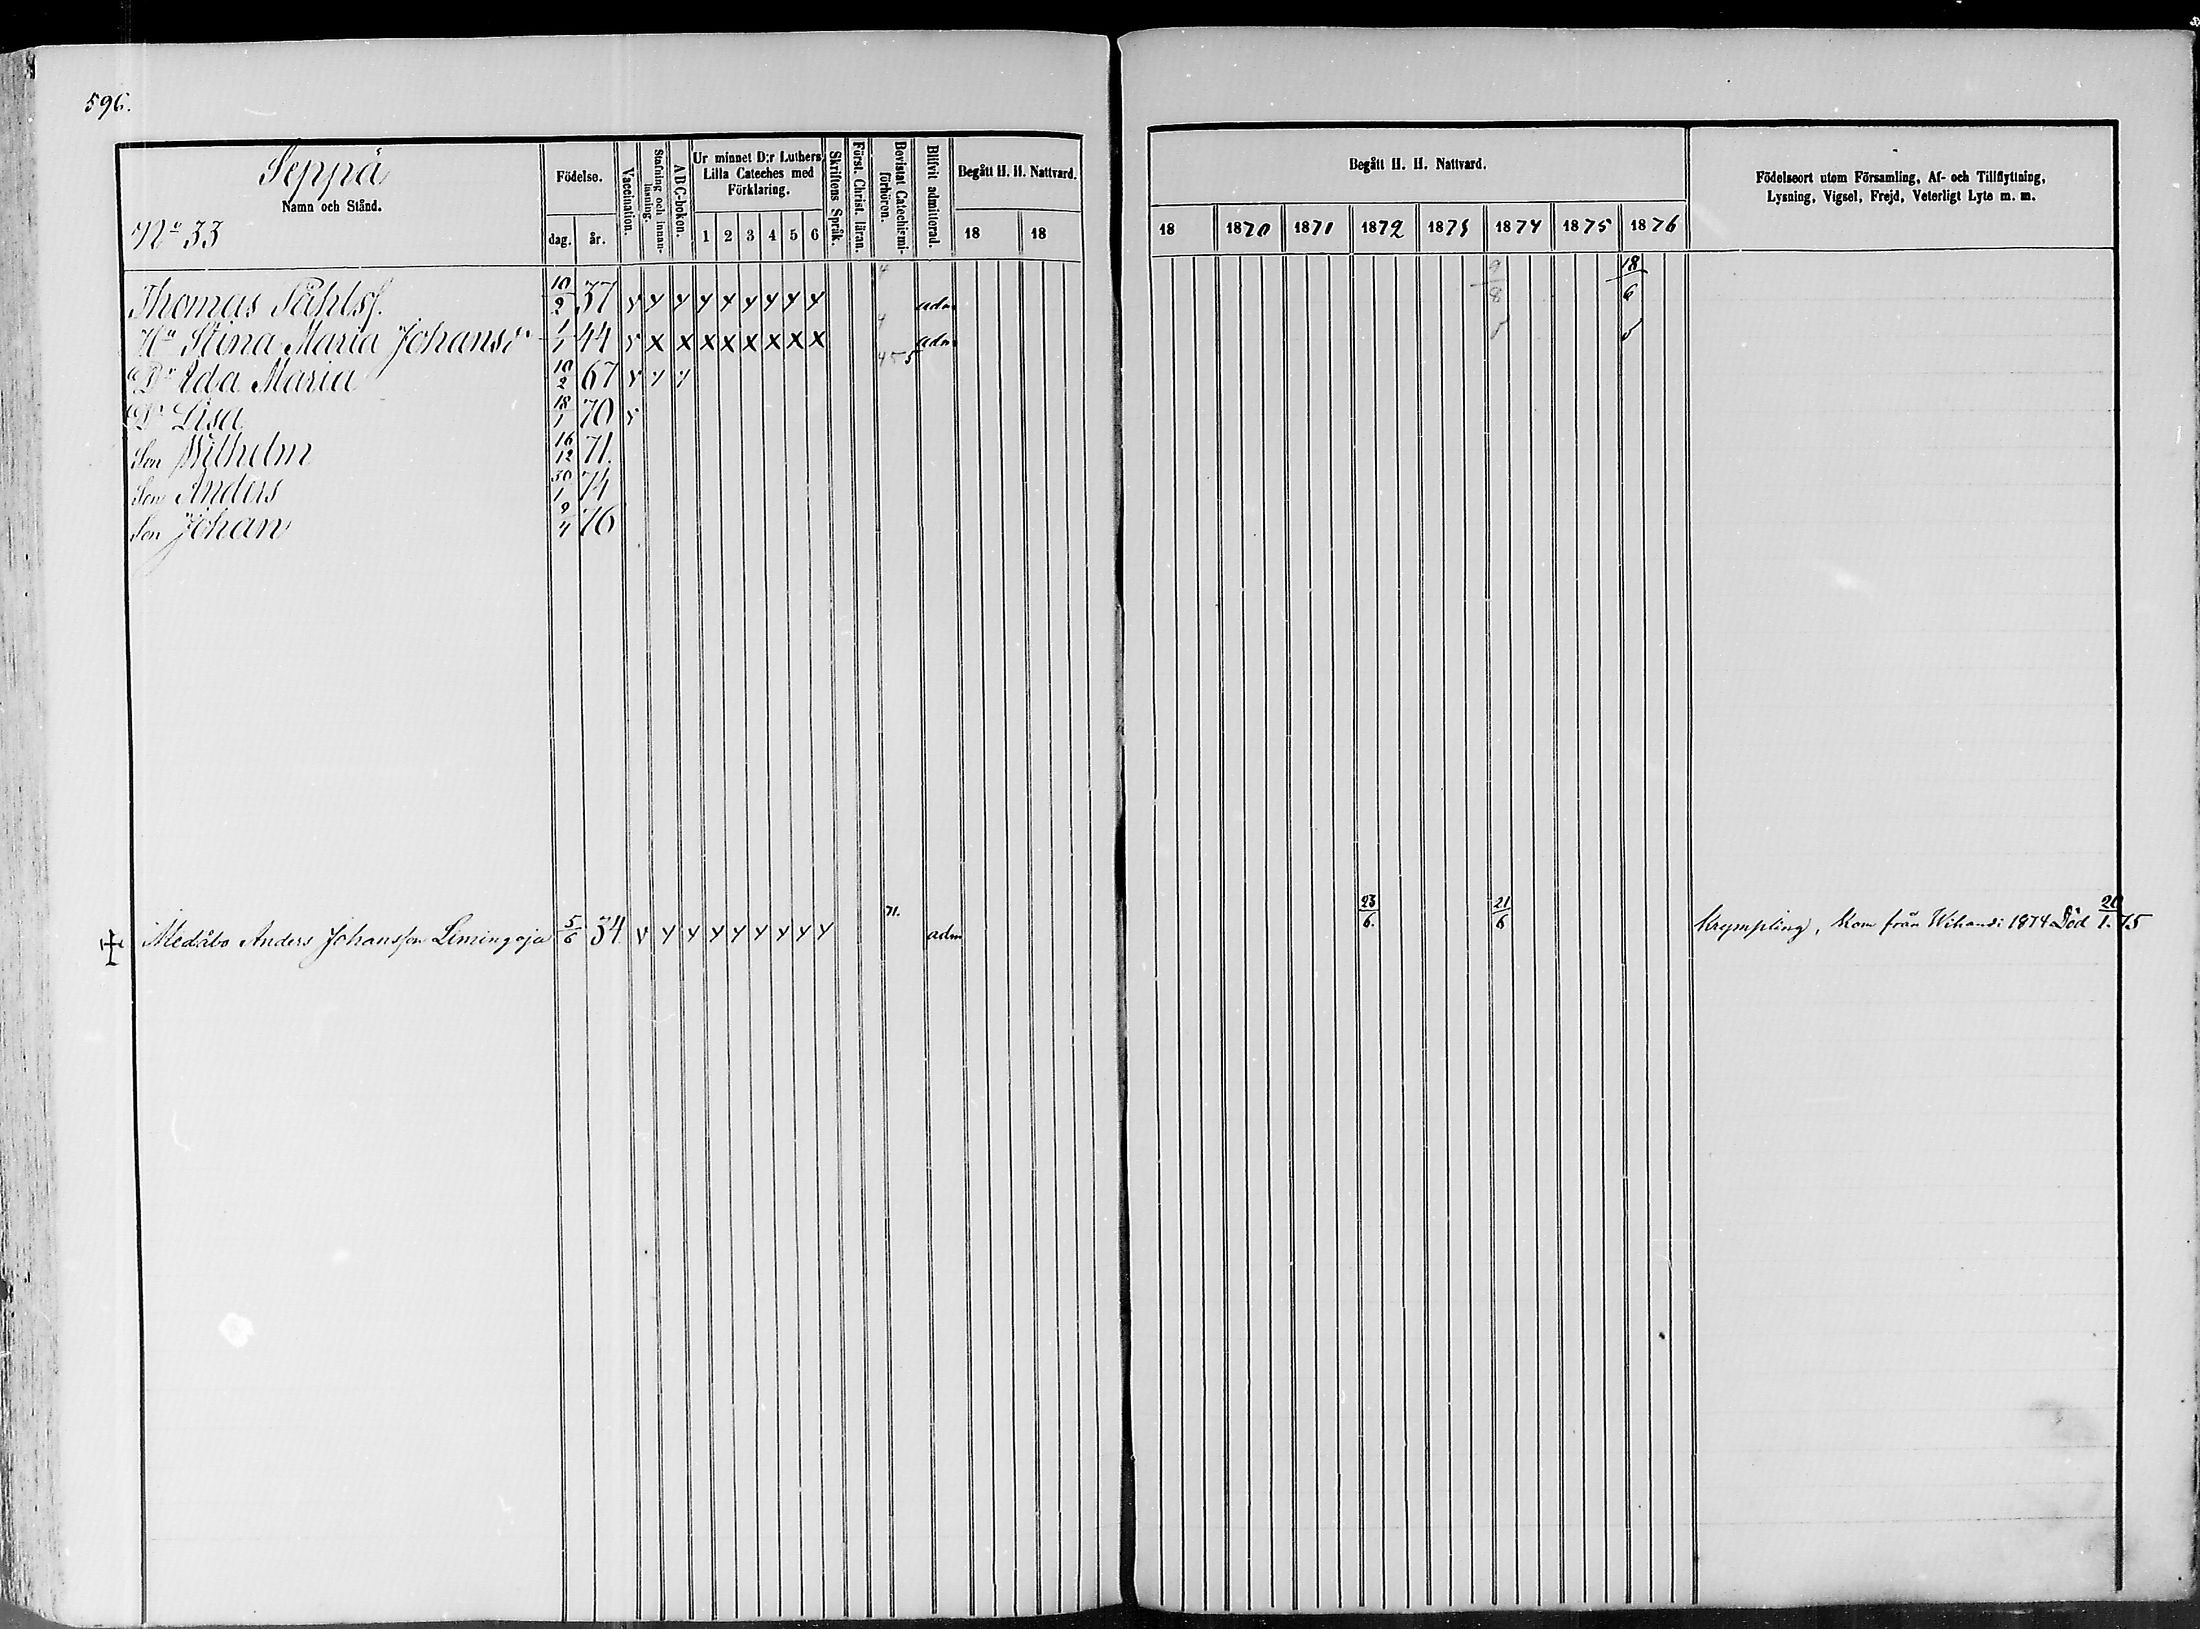 596.
Seppä
Namn och Stånd.
No 33
Födelse.
dag. år.
Vaccination.
Stafning och innanläsning.
ABC-boken.
Ur minnet D:r Luthers
Lilla Cateches med
Förklaring.
1 2 3 4 5 6
Skriftens Språk.
Först. Christ. läran.
Bevistat Catechismiförhören.
Blifvit admitterad.
Begått H. H. Nattvard.
18 18
Begått H. H. Nattvard.
18 1870 1871 1872 1873 1874 1875 1876
Födelseort utom Församling, Af- och Tillflyttning,
Lysning, Vigsel, Frejd, Veterligt Lyte m. m.
Thomas Påhlsf. 10/2 37 adm 9/8 18/6
Hu Stina Maria Johansdr 1/1 44 v x x x x x x x x adm
Dr Ida Maria 10/2 67
Dr Lisa 18/1 70
Son Wilhelm 16/12 71.
Son Anders 30/1 74
Son Johan 9/4 76
Medåbo Anders Johansson Limingoja 5/6 34 71. adm 23/6. 21/6 Krympling, Kom från Wihandi 1874 Död 20/1. 75